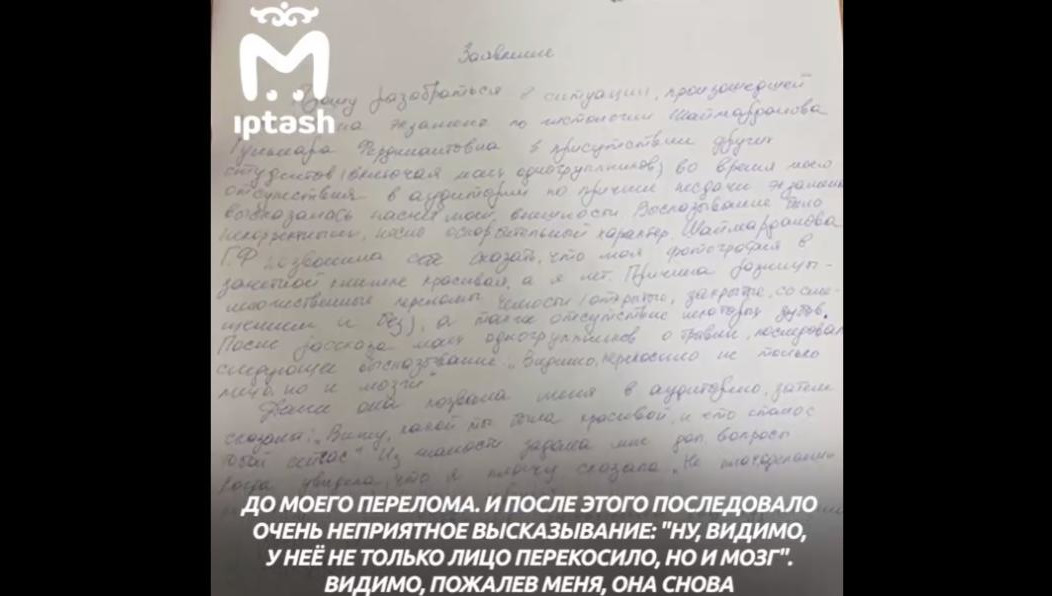 iptash
Заявление
Прошу разобраться в ситуации, произошедшей
на экзамене по гистологии. Шаймарданова
Гульнара Фердинантовна в присутствии других
студентов (включая моих одногруппников) во время моего
отсутствия в аудитории по причине несдачи экзамена
высказалась насчет моей внешности. Высказывание было
некорректным, носило оскорбительный характер. Шаймарданова
Г.Ф. позволила себе сказать, что моя фотография в
зачетной книжке красивая, а я нет. Причина разницы -
множественные переломы челюсти (открытые, закрытые, со сме-
щением и без), а также отсутствие некоторых зубов.
После рассказа моих одногруппников о травме, последовало
следующее высказывание: „Видимо, перекосило не только
лицо, но и мозги"
Далее она позвала меня в аудиторию, затем
сказала: „Вижу, какой ты была красивой, и что стало с
тобой сейчас" Из жалости задала мне доп. вопросы
Когда увидела, что я плачу, сказала „Не
ДО МОЕГО ПЕРЕЛОМА. И ПОСЛЕ ЭТОГО ПОСЛЕДОВАЛО
ОЧЕНЬ НЕПРИЯТНОЕ ВЫСКАЗЫВАНИЕ: "НУ, ВИДИМО,
У НЕЁ НЕ ТОЛЬКО ЛИЦО ПЕРЕКОСИЛО, НО И МОЗГ".
ВИДИМО, ПОЖАЛЕВ МЕНЯ, ОНА СНОВА